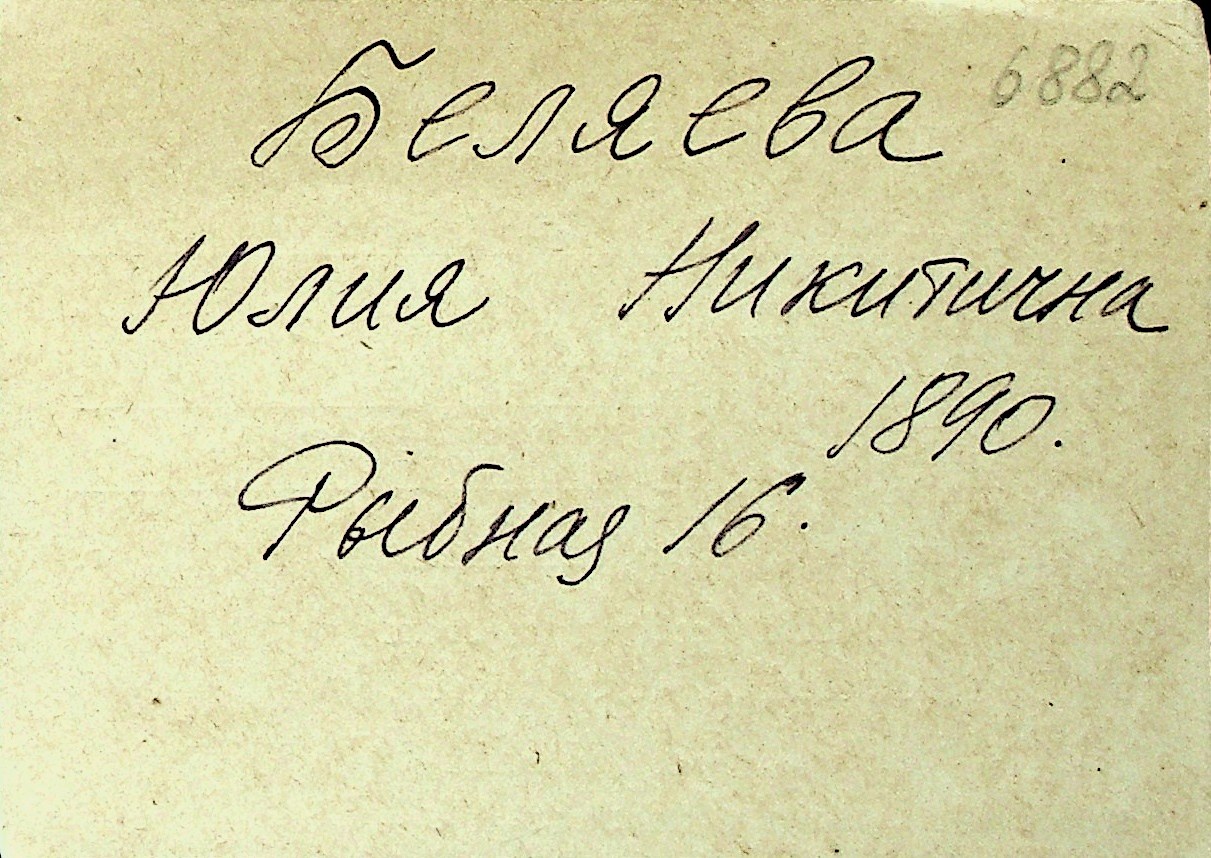 6882
Беляева
Юлия Никитична
1890.
Рыбная 16.